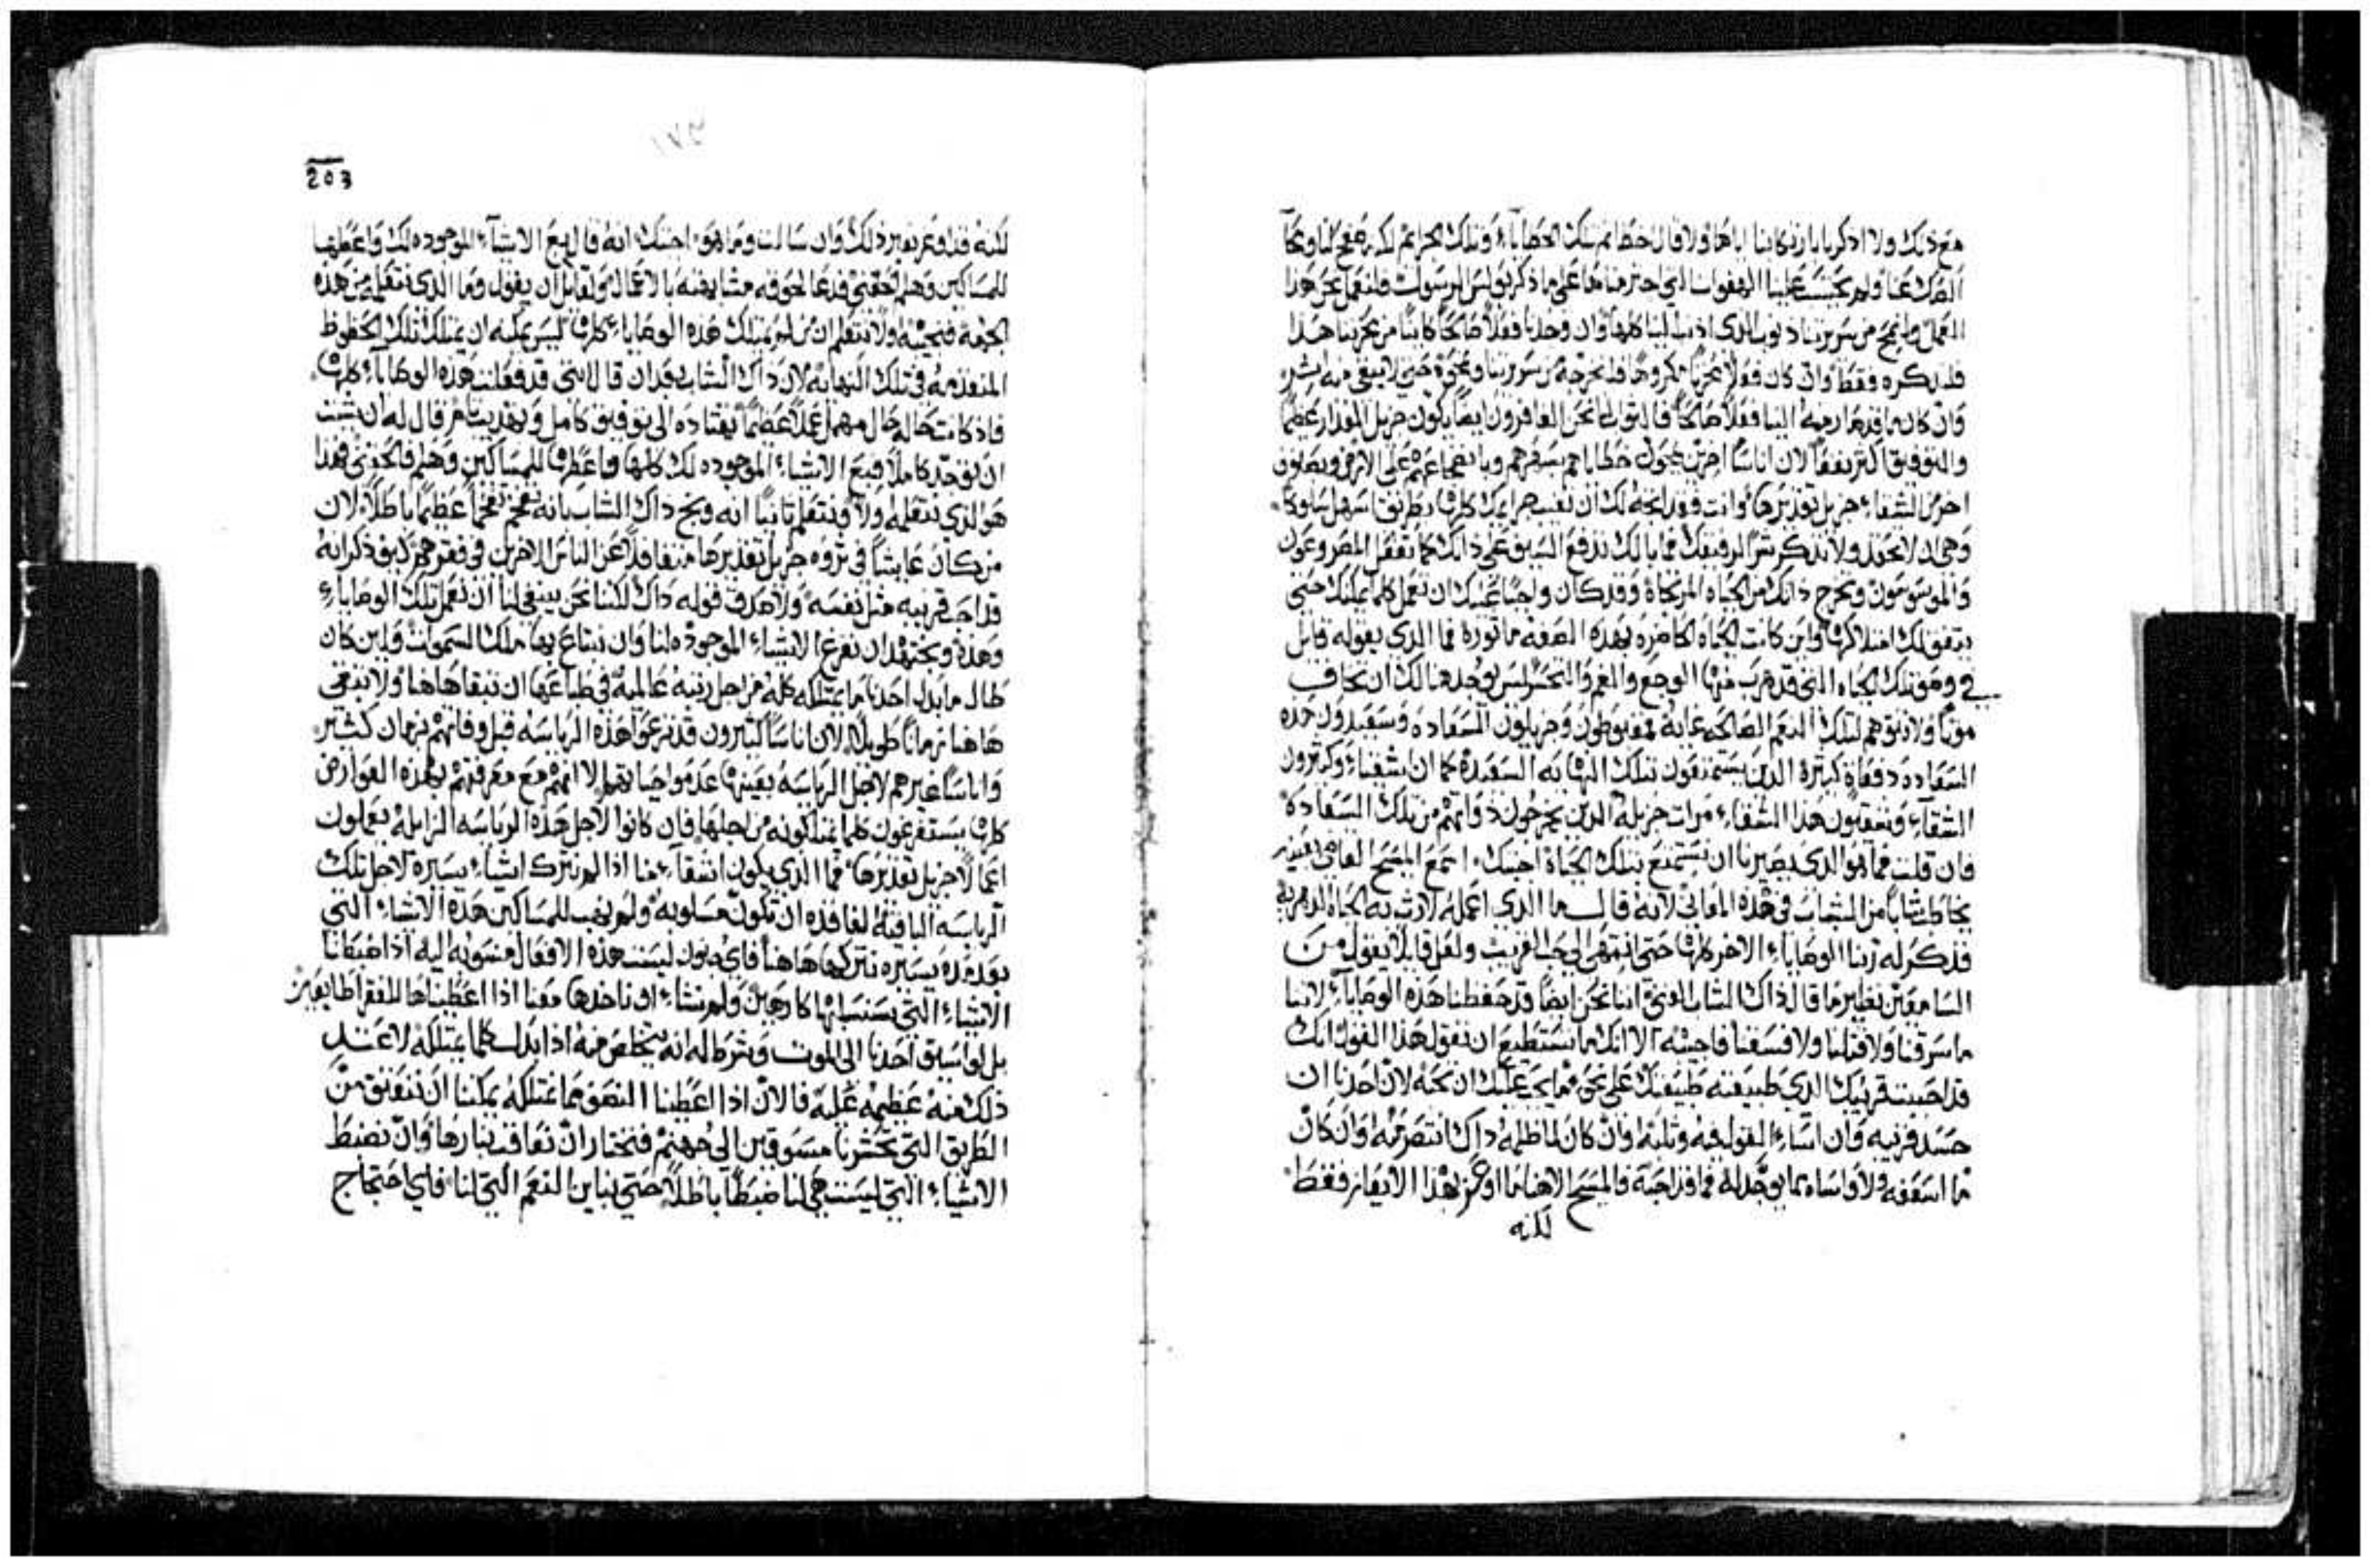 مع ذلك ولا اذكرنا بارتكابنا اياها ولا قال خطاتم تلك الخطايا وتلك الجرايم لكنه صفح لنا ومحا
الصك عنا ولم يحتسب علينا الهفوات التي اجترمناها على ما ذكر بولس الرسول فلنعمل نحن هذا
العمل ولنمح من سريرتنا ذنوب الذي اذنب الينا كلها وان وجدنا فعلا صالحا كاينا من محزننا هذا
فلنذكره فقط وان كان فعلا محزنا مكروها فلنخرجه من سريرتنا ونمحوه حتى لا يبقى منه اثر
وان كان ما قدم ارجمه الينا فعلا صالحا فالثواب لنا نحن الغافرون ايضا يكون جزيل المقدار عظيما
والتوفيق اكثر نفعا لان اناسا اخرين يمحون خطاياهم بسهرهم وبانضجاعهم على الارض ويصابون
اخر من الشقاء جزيل تقديرها وانت فقد اتجه لك ان تغسل جرايمك كلها بطريق اسهل سلوكا
وهي ان لا تحقد ولا تذكر شر الرفيقك فما بالك تدفع السيف على ذاتك كما تفعل المصروعون
والموسوسون وتخرج ذاتك من الحياه المرتجاة وقد كان واجبا عليك ان تعمل كلما يمكنك حتى
يتفق لك امتلاكها ولين كانت الحياه الحاضره بهذه الصفه ماثورة فما الذي يقوله قايل
في وصف تلك الحياه التي قد هرب منها الوجع والغم والتحسر ليس يوجد هنالك ان تخاف
موتا ولا تتوهم لتلك النعم الصالحه غايه فمغبوطون وجزيلون السعاده وسعيدون هذه
السعاده دفعات كثيرة الذين يستمتعون بتلك النهايه السعيدة كما ان اشقياء وكثيرون
الشقاء ومشقيون هذا الشقاء مرات جزيلة الذين يخرجون ذواتهم من تلك السعادة
فان قلت فما هو الذي يصيرنا ان نستمتع بتلك الحياة اجبتك استمع المسيح القاضي بعينه
يخاطب شابا من الشباب في هذه المعاني لانه قال ما الذي اعمله لارث به الحياه الدهريه
فذكر له ربنا الوصايا الاخر كلها حتى انتهى الى حب القريب ولعل قايلا يقول من
السامعين نظير ما قال ذاك الشاب الغني اننا نحن ايضا قد حفظنا هذه الوصايا لاننا
ما سرقنا ولا قتلنا ولا فسقنا فاجيبه الا انك ما تستطيع ان تقول هذا القول انك
قد احببت قريبك الذي طبيعته طبيعتك على نحو ما يجب عليك ان تحبه لان احدنا ان
حسد قريبه وان اساء القول فيه وثلبه وان كان لما ظلمه ذاك انتصر منه وان كان
ما اسعفه ولا واساه بما يوجد له فما قد احبه فالمسيح الاهنا ما اوعز بهذا الايعاز فقط
لكنه
203
لكنه قد اوعز بغير ذلك وان سالت وما هو اجبتك انه قال بع الاشياء الموجوده لك واعطها
للمساكين وهلم اتبعني فدعا لحوقه مشابهته بالاعمال ولقايل ان يقول وما الذي نتعلمه من هذه
الجهة فنجيبه اولا نتعلم ان من لم يمتلك هذه الوصايا كلها ليس يمكنه ان يمتلك تلك الحظوظ
المتقدمه في تلك النهايه لان ذاك الشاب بعد ان قال انني قد فعلت هذه الوصايا كلها
فاذ كانت حاله حال مهمل عملا عظيما يقتاده الى توفيق كامل وتهذيب تام قال له ان شيت
ان توجد كاملا فبع الاشياء الموجوده لك كلها واعطها للمساكين وهلم فالحقني فهذا
هو الذي نتعلمه اولا ونتعلم ثانيا انه وبخ ذاك الشاب بانه تفخم تفخما عظيما باطلا لان
من كان عايشا في ثروه جزيل تقديرها متغافلا عن الناس الاخرين في فقرهم كيف ذكر انه
قد احب قريبه مثل نفسه ولا صدق قوله ذاك لكننا نحن ينبغي لنا ان نعمل تلك الوصايا
وهذه ونجتهد ان نفرغ الاشياء الموجوده لنا وان نبتاع بها ملك السموات ولين كان
طال ما بذل احدنا ما يمتلكه كله من اجل رتبة عالمية في طباعها ان تبقا هاهنا ولا تبقى
هاهنا زمانا طويلا لان اناسا كثيرون قد نزعوا هذه الرياسه قبل وفاتهم بزمان كثير
واناسا غيرهم لاجل الرياسه بعينها عدموا حياتهم الا انهم مع معرفتهم بهذه العوارض
كلها يستفرغون كلما يمتلكونه من اجلها فان كانوا لاجل هذه الرياسه الزايلة يعملون
اعمالا جزيل تقديرها فما الذي يكون اشقاء منا اذا لم نترك اشياء يسيره لاجل تلك
الرياسه الباقية الفاقده ان تكون مسلوبه ولم نهب للمساكين هذه الاشياء التي
بعد مدة يسيره نتركها هاهنا فاي جنون ليست هذه الافعال منسوبه اليه اذا ضبطنا
الاشياء التي يستنسلبها كارهين ولم نشاء ان ناخذها معنا اذا اعطيناها للفقرا طايعين
بل لو اسيق احدنا الى الموت وشرط له انه يتخلص منه اذا بذل كلما يمتلكه لاعتد
ذلك منه عظيمه عليه فالان اذا اعطينا النصف مما نمتلكه يمكننا ان ننعتق من
الطريق التي تحشرنا مسوقين الى جهنم فنختار ان نعاقب بنارها وان نضبط
الاشياء التي ليست هي لنا ضبطا باطلا حتى نباين النعم التي لنا فاي احتجاج